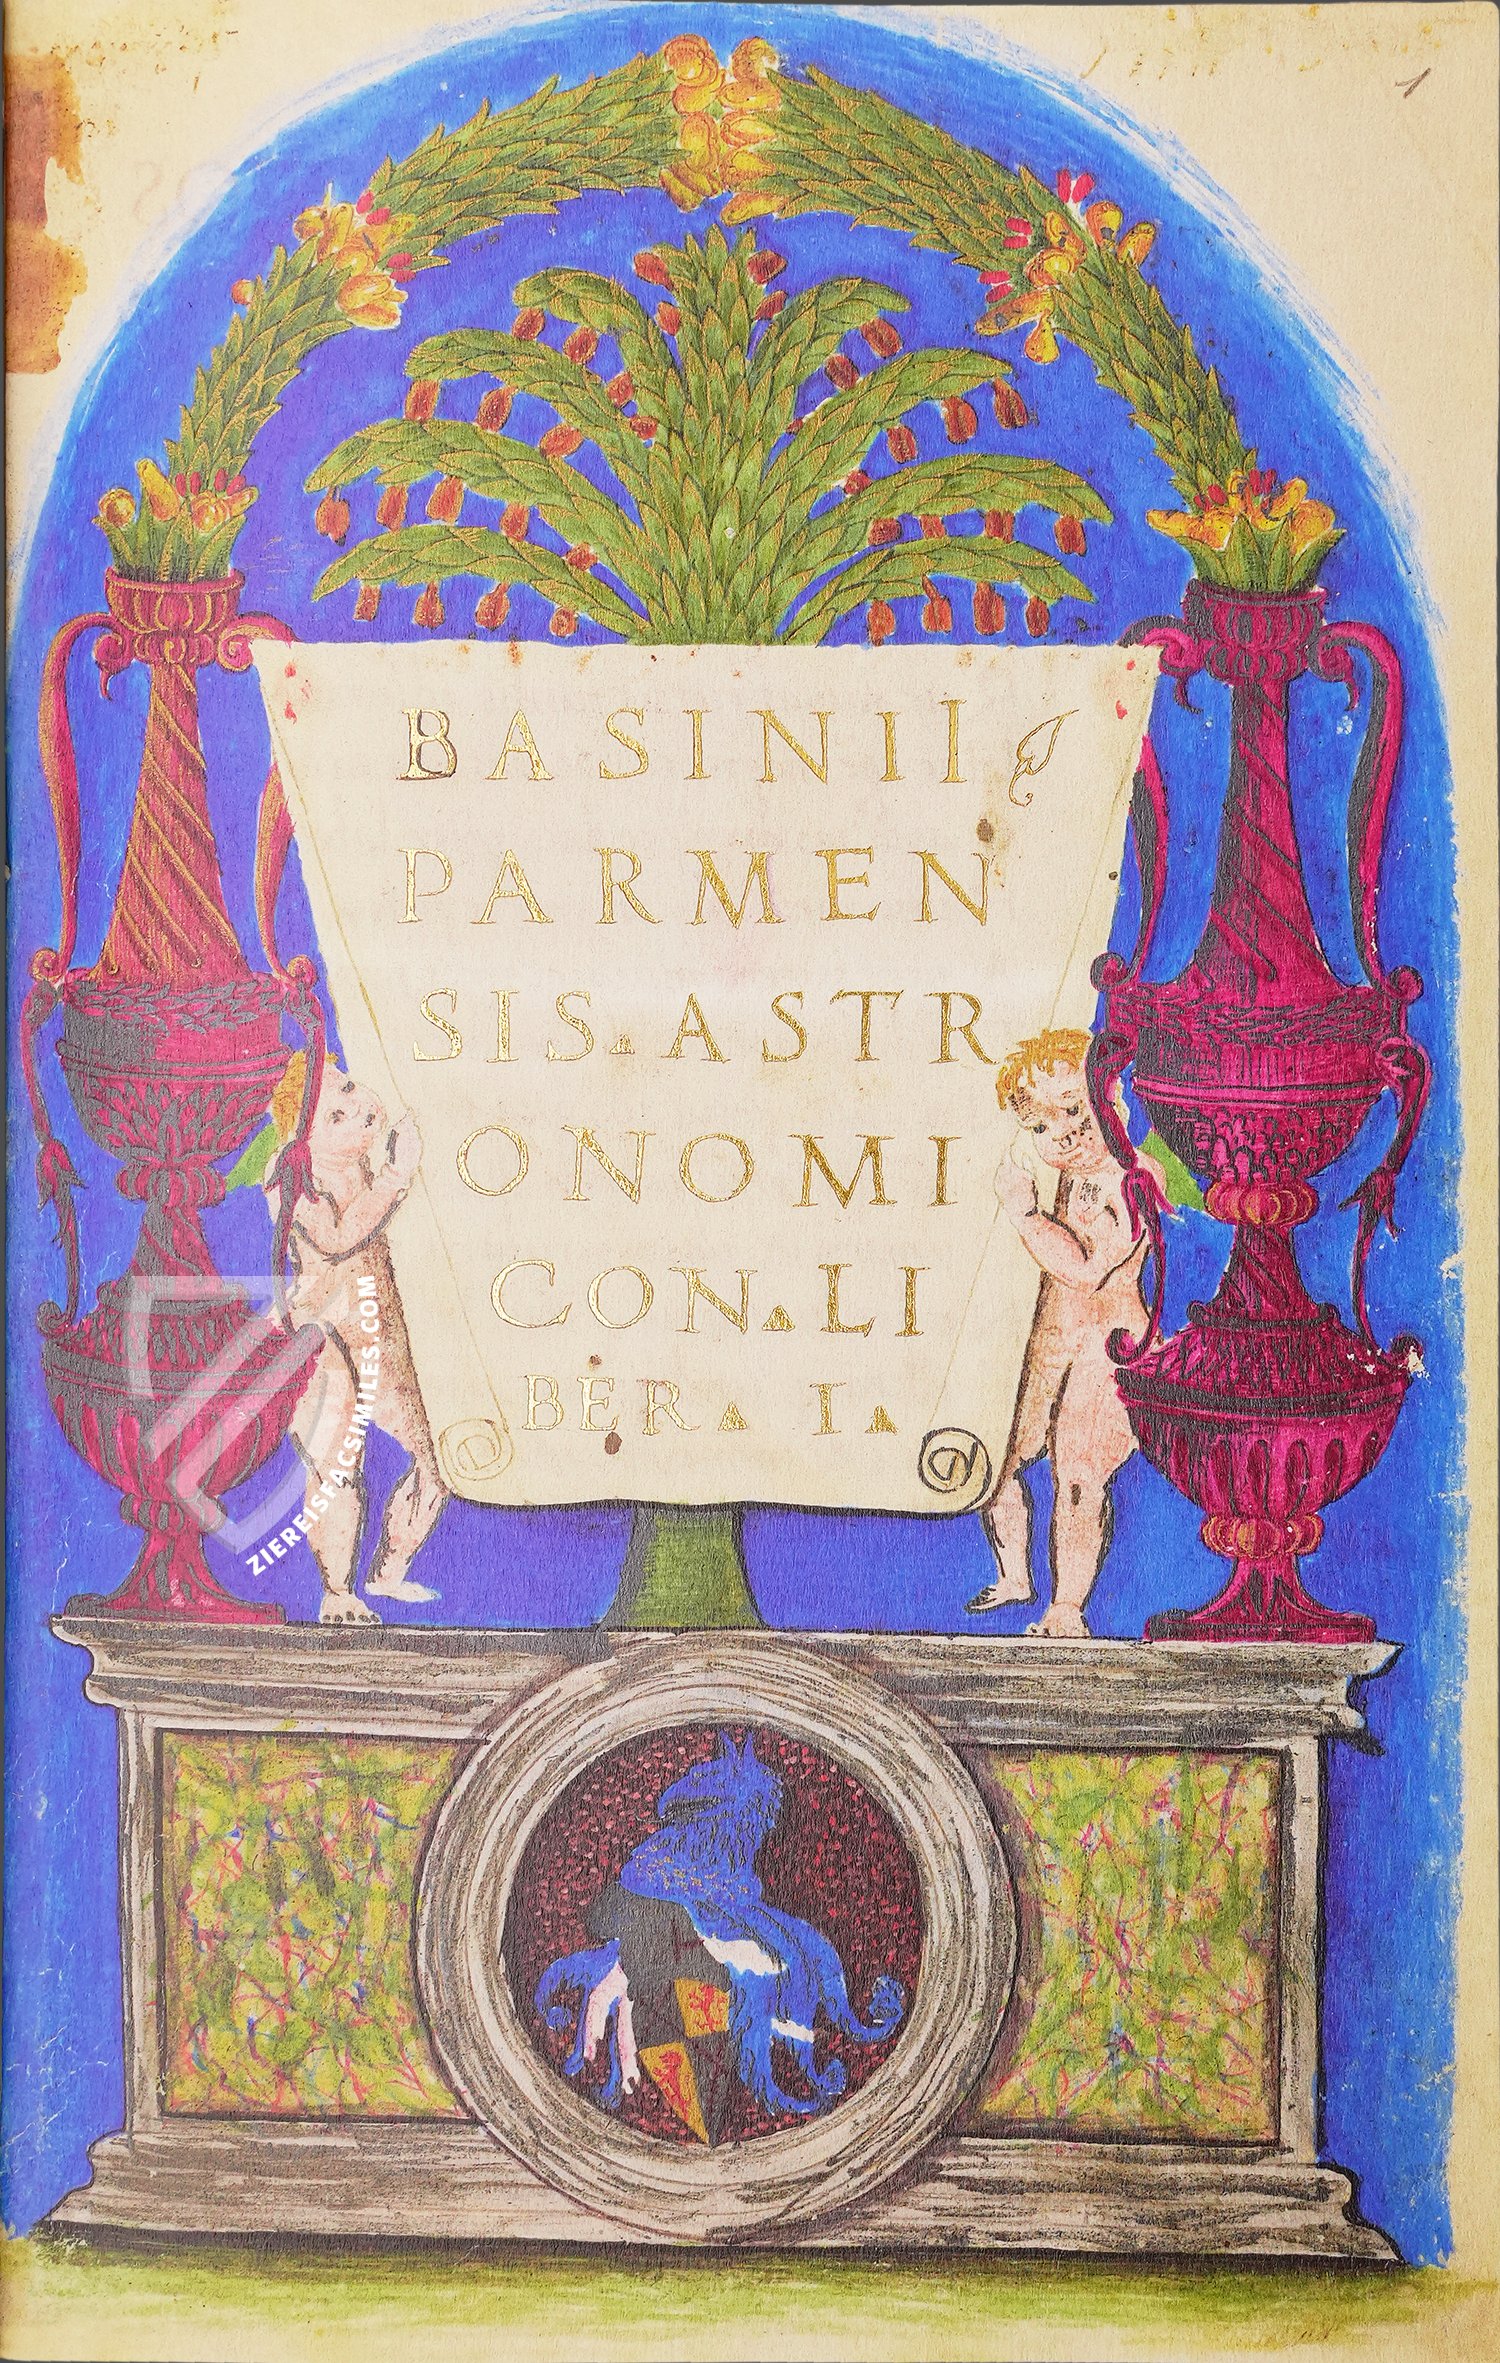 1
BASINII
PARMEN
SIS ▴ ASTR
ONOMI
CON ▴ LI
BER ▴ I ▴
ZIEREISFACSIMILES.COM